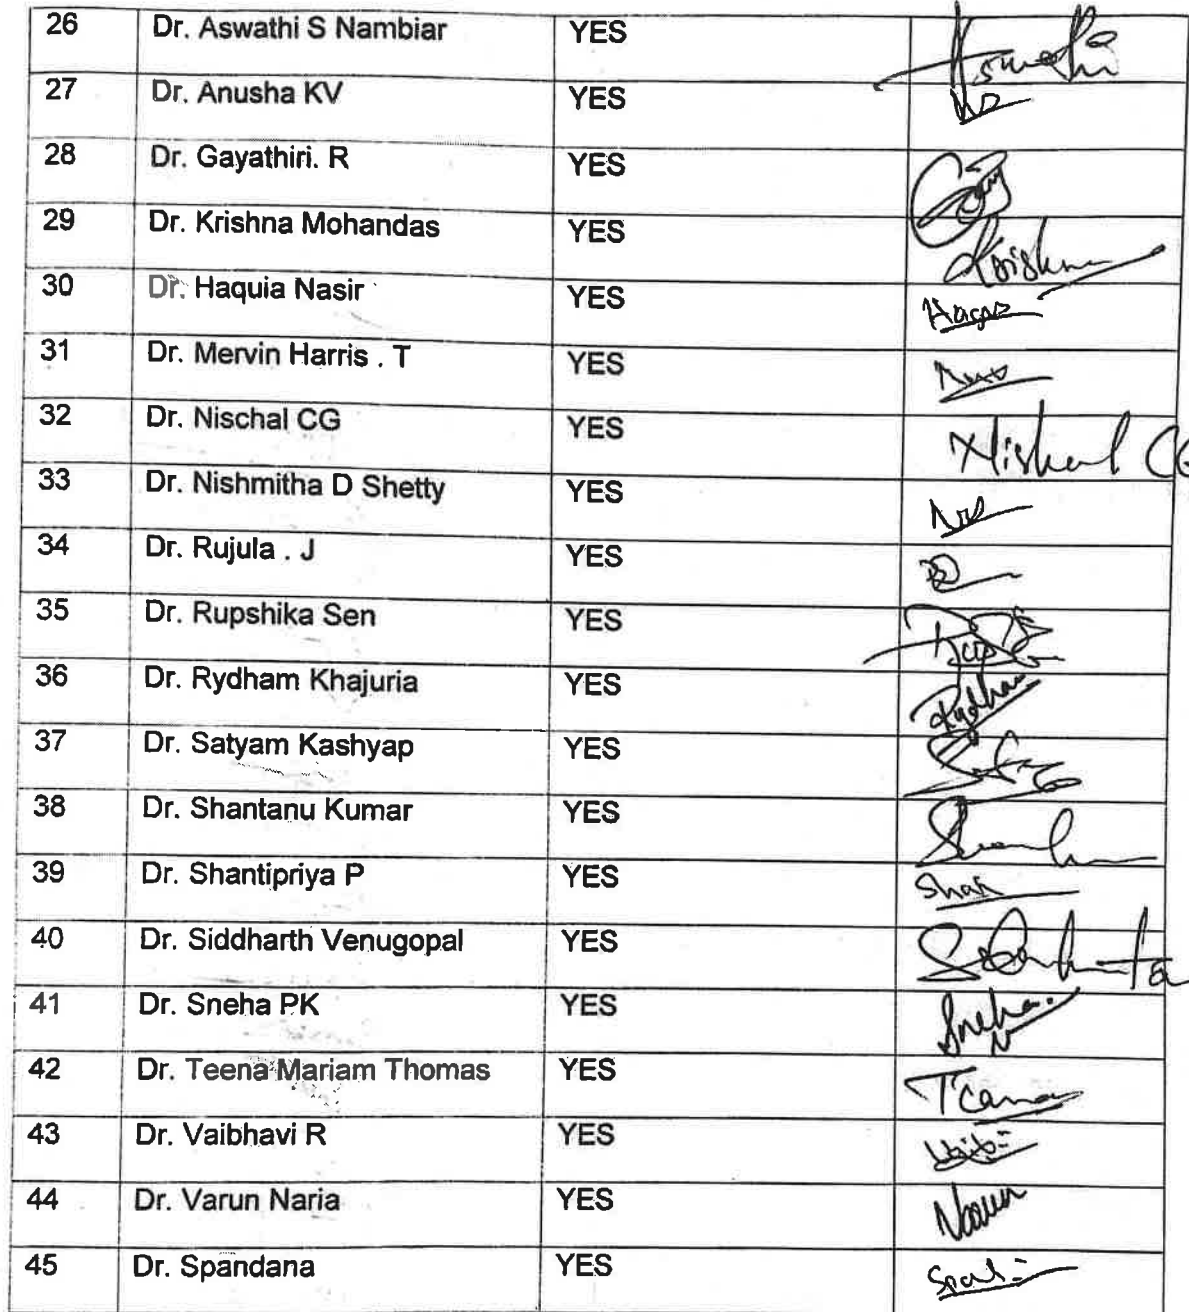 26 Dr. Aswathi S Nambiar YES Aswathi
27 Dr. Anusha KV YES
28 Dr. Gayathiri. R YES
29 Dr. Krishna Mohandas YES Krishna
30 Dr. Haquia Nasir YES
31 Dr. Mervin Harris . T YES
32 Dr. Nischal CG YES Nishcal CG
33 Dr. Nishmitha D Shetty YES
34 Dr. Rujula . J YES
35 Dr. Rupshika Sen YES
36 Dr. Rydham Khajuria YES Rydham
37 Dr. Satyam Kashyap YES
38 Dr. Shantanu Kumar YES
39 Dr. Shantipriya P YES Shan
40 Dr. Siddharth Venugopal YES
41 Dr. Sneha PK YES Sneha
42 Dr. Teena Mariam Thomas YES
43 Dr. Vaibhavi R YES
44 Dr. Varun Naria YES
45 Dr. Spandana YES